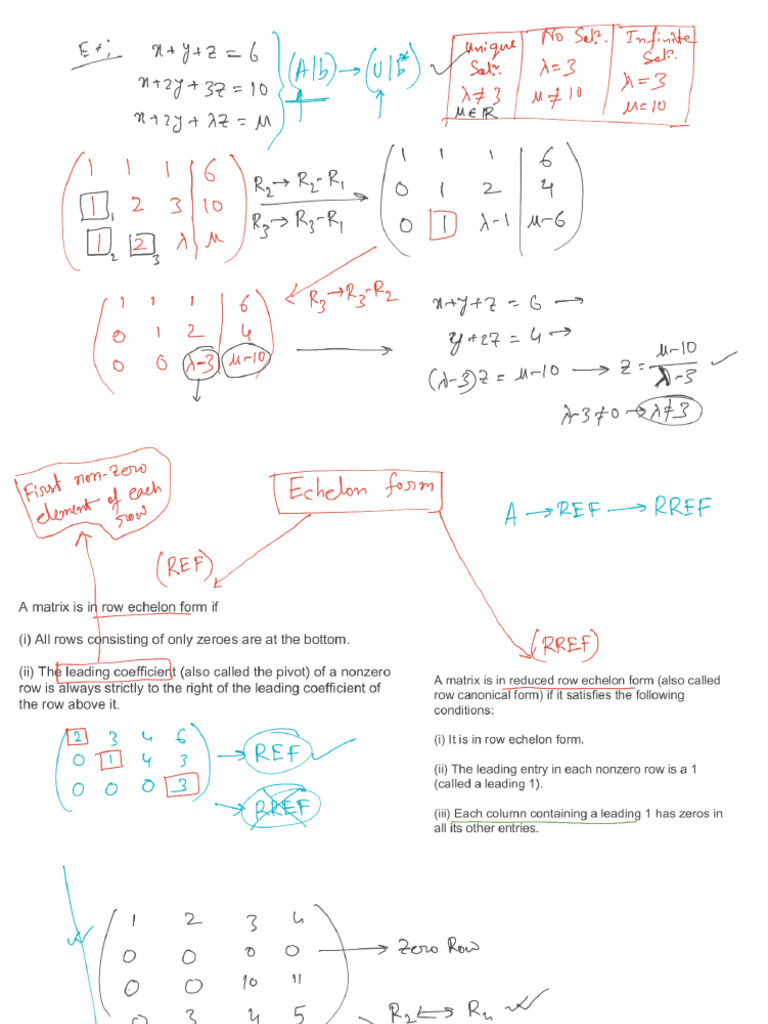 Ex:
x+y+z = 6
x+2y+3z = 10
x+2y+λz = μ
(A|b) → (U|b*)
Unique Solⁿ. No Solⁿ. Infinite Solⁿ.
λ≠3 λ=3 λ=3
μ∈ℝ μ≠10 μ=10
1 1 1 | 6
1₁ 2 3 | 10
1₂ 2₃ λ | μ
R₂→R₂-R₁
R₃→R₃-R₁
1 1 1 | 6
0 1 2 | 4
0 1 λ-1 | μ-6
R₃→R₃-R₂
1 1 1 | 6
0 1 2 | 4
0 0 λ-3 | μ-10
x+y+z = 6 →
y+2z = 4 →
(λ-3)z = μ-10 → z = μ-10 / λ-3
λ-3≠0 → λ≠3
First non-zero
element of each
row
Echelon form
A → REF → RREF
(REF)
A matrix is in row echelon form if
(i) All rows consisting of only zeroes are at the bottom.
(ii) The leading coefficient (also called the pivot) of a nonzero
row is always strictly to the right of the leading coefficient of
the row above it.
2 3 4 6
0 1 4 3
0 0 0 3
→ REF
→ RREF
(RREF)
A matrix is in reduced row echelon form (also called
row canonical form) if it satisfies the following
conditions:
(i) It is in row echelon form.
(ii) The leading entry in each nonzero row is a 1
(called a leading 1).
(iii) Each column containing a leading 1 has zeros in
all its other entries.
1 2 3 4
0 0 0 0 → Zero Row
0 0 10 11
0 3 4 5
R₂↔R₄